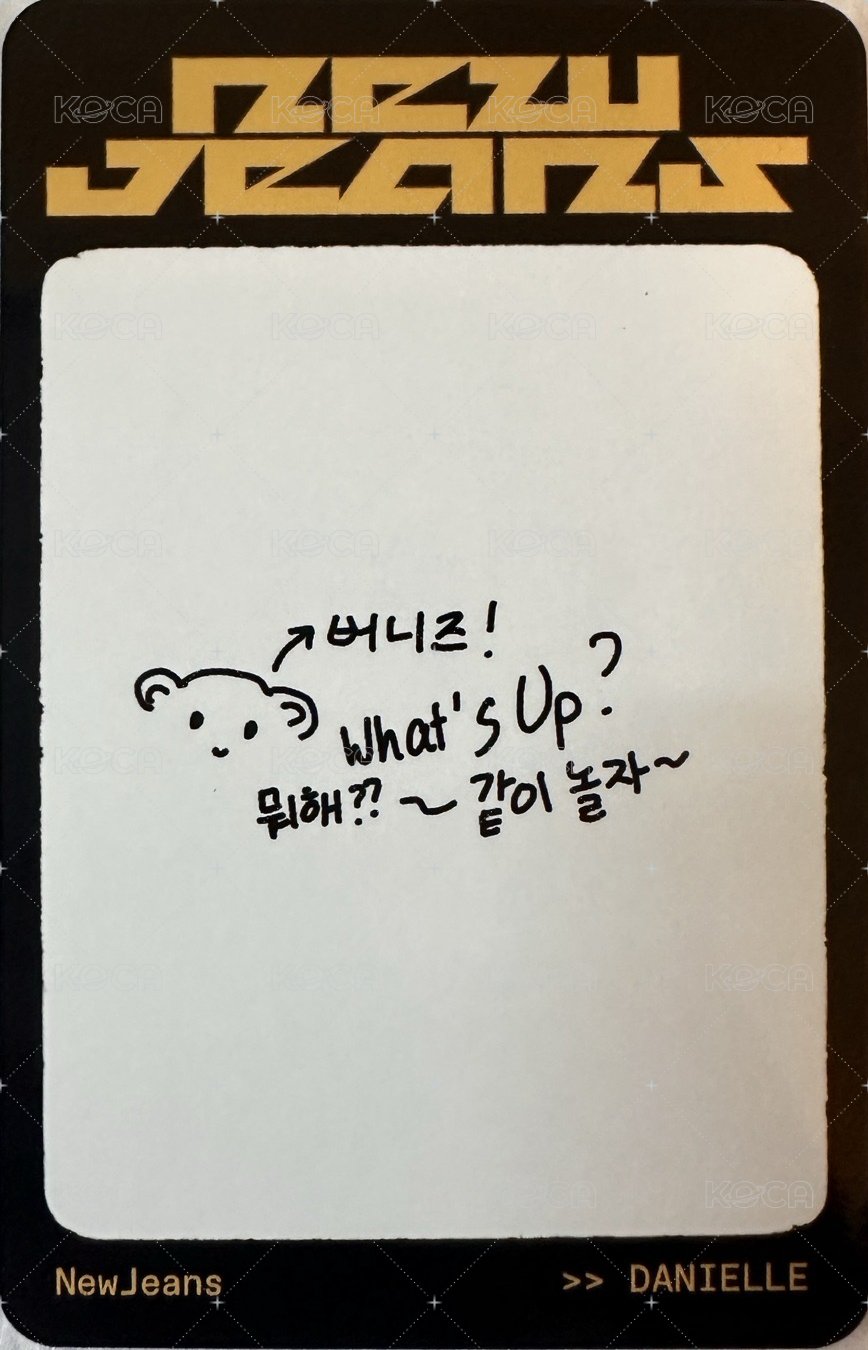 new
jeans
버니즈!
What's Up?
뭐해?? ~ 같이 놀자~
NewJeans >> DANIELLE
KOCA